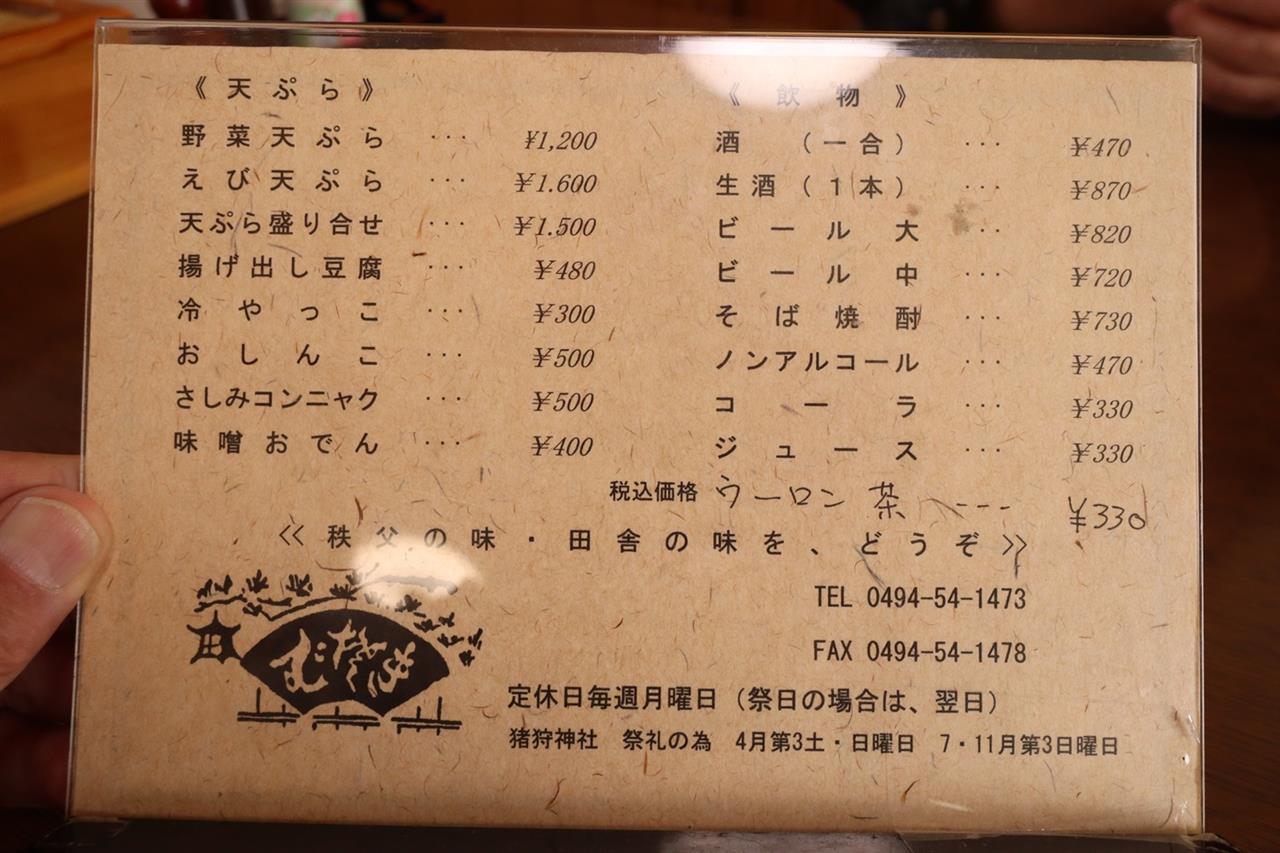 《天ぷら》
野菜天ぷら ··· ¥1,200
えび天ぷら ··· ¥1.600
天ぷら盛り合せ ··· ¥1.500
揚げ出し豆腐 ··· ¥480
冷やっこ ··· ¥300
おしんこ ··· ¥500
さしみコンニャク ··· ¥500
味噌おでん ··· ¥400
《飲物》
酒（一合） ··· ¥470
生酒（1本） ··· ¥870
ビール大 ··· ¥820
ビール中 ··· ¥720
そば焼酎 ··· ¥730
ノンアルコール ··· ¥470
コーラ ··· ¥330
ジュース ··· ¥330
税込価格 ウーロン茶 ---- ¥330
<<秩父の味・田舎の味を、どうぞ>>
TEL 0494-54-1473
FAX 0494-54-1478
定休日毎週月曜日（祭日の場合は、翌日）
猪狩神社 祭礼の為 4月第3土・日曜日 7・11月第3日曜日